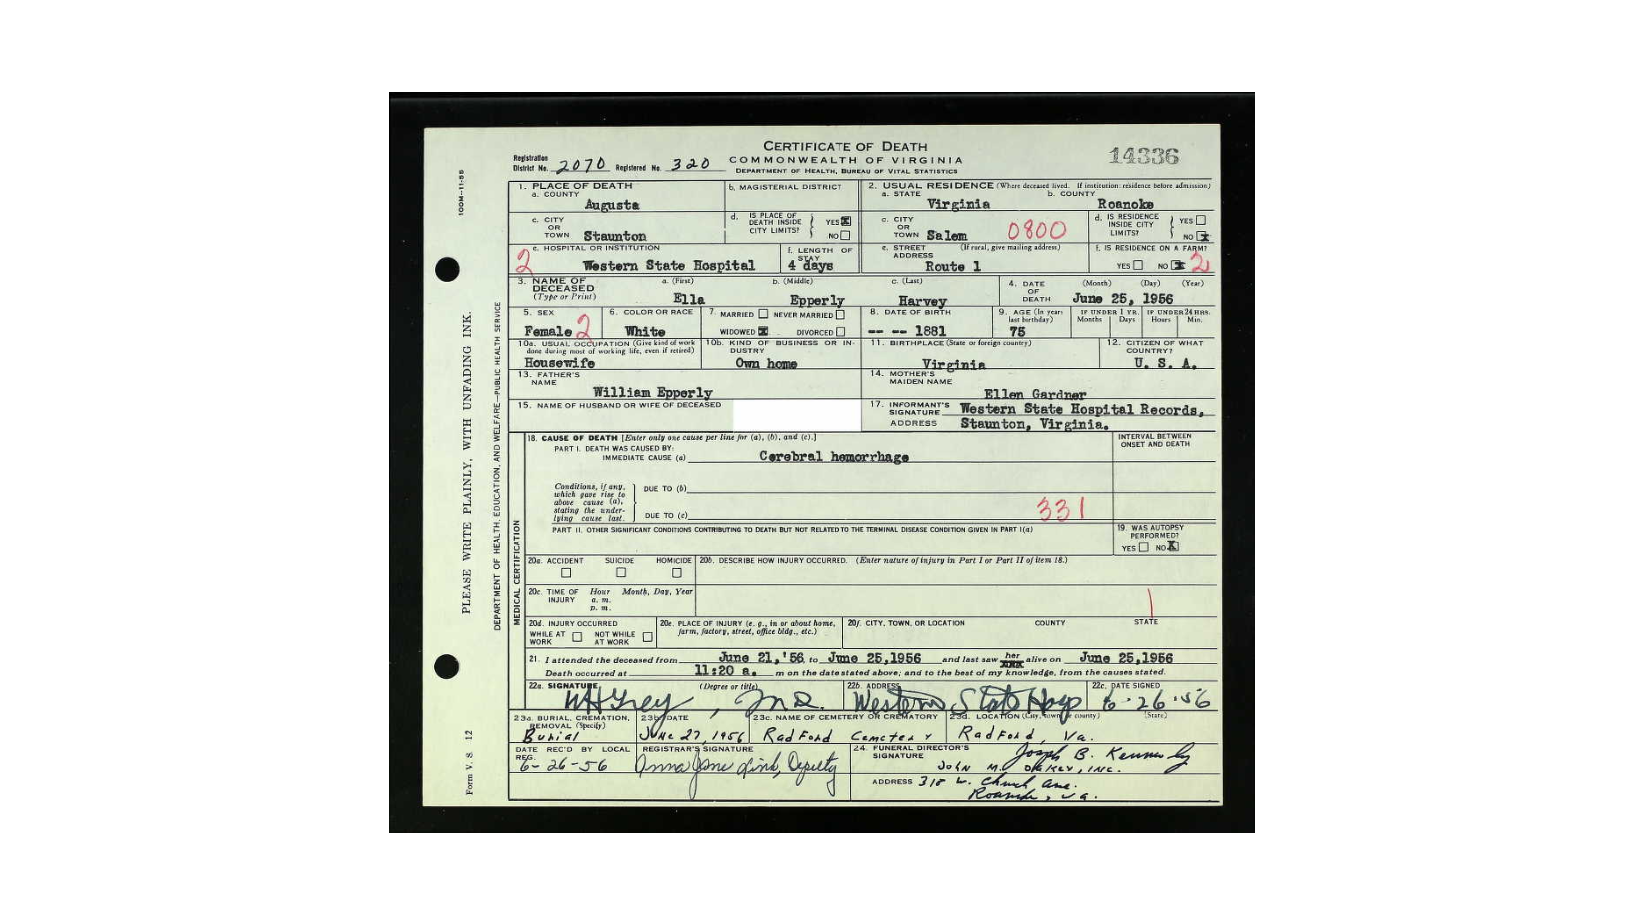 CERTIFICATE OF DEATH
14336
Registration District No. 2070 Registered No. 320 COMMONWEALTH OF VIRGINIA
DEPARTMENT OF HEALTH, BUREAU OF VITAL STATISTICS
100M-11-55
PLEASE WRITE PLAINLY, WITH UNFADING INK.
DEPARTMENT OF HEALTH, EDUCATION, AND WELFARE—PUBLIC HEALTH SERVICE
Form V. S. 12
1. PLACE OF DEATH
a. COUNTY
Augusta
b. MAGISTERIAL DISTRICT
2. USUAL RESIDENCE (Where deceased lived. If institution: residence before admission)
a. STATE b. COUNTY
Virginia Roanoke
c. CITY OR TOWN Staunton
d. IS PLACE OF DEATH INSIDE CITY LIMITS? YES X NO
c. CITY OR TOWN Salem 0800
d. IS RESIDENCE INSIDE CITY LIMITS? YES NO X
e. HOSPITAL OR INSTITUTION
2 Western State Hospital
f. LENGTH OF STAY
4 days
e. STREET ADDRESS (If rural, give mailing address)
Route 1
f. IS RESIDENCE ON A FARM?
YES NO X 2
3. NAME OF DECEASED (Type or Print)
a. (First) b. (Middle) c. (Last)
Ella Epperly Harvey
4. DATE OF DEATH (Month) (Day) (Year)
June 25, 1956
5. SEX
Female 2
6. COLOR OR RACE
White
7. MARRIED NEVER MARRIED
WIDOWED X DIVORCED
8. DATE OF BIRTH
-- -- 1881
9. AGE (In years last birthday)
75
IF UNDER 1 YR. Months Days
IF UNDER 24 HRS. Hours Min.
10a. USUAL OCCUPATION (Give kind of work done during most of working life, even if retired)
Housewife
10b. KIND OF BUSINESS OR INDUSTRY
Own home
11. BIRTHPLACE (State or foreign country)
Virginia
12. CITIZEN OF WHAT COUNTRY?
U. S. A.
13. FATHER'S NAME
William Epperly
14. MOTHER'S MAIDEN NAME
Ellen Gardner
15. NAME OF HUSBAND OR WIFE OF DECEASED
17. INFORMANT'S SIGNATURE Western State Hospital Records,
ADDRESS Staunton, Virginia.
MEDICAL CERTIFICATION
18. CAUSE OF DEATH [Enter only one cause per line for (a), (b), and (c).]
INTERVAL BETWEEN ONSET AND DEATH
PART I. DEATH WAS CAUSED BY:
IMMEDIATE CAUSE (a) Cerebral hemorrhage
Conditions, if any, which gave rise to above cause (a), stating the underlying cause last.
DUE TO (b)
DUE TO (c) 331
PART II. OTHER SIGNIFICANT CONDITIONS CONTRIBUTING TO DEATH BUT NOT RELATED TO THE TERMINAL DISEASE CONDITION GIVEN IN PART I(a)
19. WAS AUTOPSY PERFORMED?
YES NO X
20a. ACCIDENT SUICIDE HOMICIDE
20b. DESCRIBE HOW INJURY OCCURRED. (Enter nature of injury in Part I or Part II of item 18.)
20c. TIME OF INJURY Hour a. m. p. m. Month, Day, Year
1
20d. INJURY OCCURRED
WHILE AT WORK NOT WHILE AT WORK
20e. PLACE OF INJURY (e. g., in or about home, farm, factory, street, office bldg., etc.)
20f. CITY, TOWN, OR LOCATION COUNTY STATE
21. I attended the deceased from June 21,'56, to June 25,1956 and last saw her alive on June 25,1956
Death occurred at 11:20 a. m on the date stated above; and to the best of my knowledge, from the causes stated.
22a. SIGNATURE (Degree or title)
, M.D.
22b. ADDRESS
Western State Hosp
22c. DATE SIGNED
6-26-56
23a. BURIAL, CREMATION, REMOVAL (Specify)
Burial
23b. DATE
June 27, 1956
23c. NAME OF CEMETERY OR CREMATORY
Radford Cemetery
23d. LOCATION (City, town, or county) (State)
Radford, Va.
DATE REC'D BY LOCAL REG.
6-26-56
REGISTRAR'S SIGNATURE
Anna Jane Lind, Deputy
24. FUNERAL DIRECTOR'S SIGNATURE
Joseph B. Kennerly
John M. Oakey, Inc.
ADDRESS 318 W. Church Ave.
Roanoke, Va.